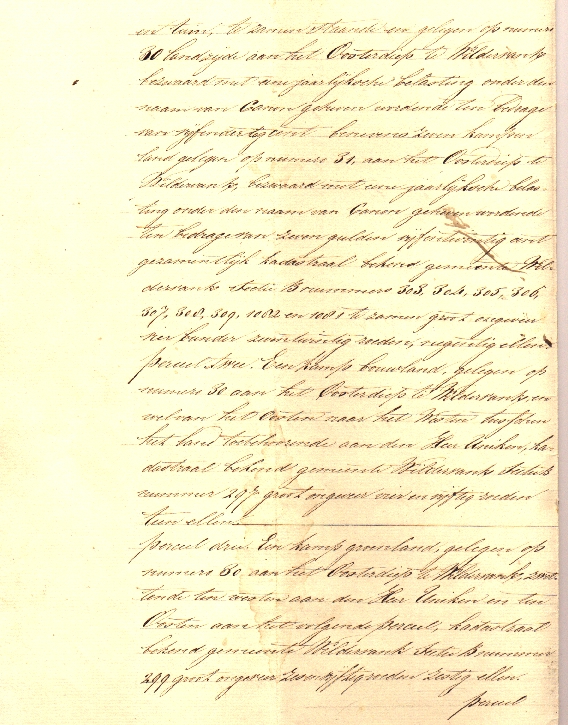 en tuin, te zamen staande en gelegen op numero
30 landzijde aan het Oosterdiep te Wildervank
bezwaard met eene jaarlijksche belasting onder den
naam van Canon geheven wordende ten bedrage
van vijfendertig cent benevens zeven kampen
land gelegen op numero 31, aan het Oosterdiep te
Wildervank, bezwaard met eene jaarlijksche belas-
ting onder den naam van Canon geheven wordende
ten bedrage van zeven gulden vijfentwintig cent
gezamentlijk kadastraal bekend gemeente Wil-
dervank Sectie B nummers 303, 304, 305, 306,
307, 308, 309, 1082 en 1081 te zamen groot ongeveer
bunder zeventwintig roeden, negentig ellen.
perceel twee. Een kamp bouwland, gelegen op
numero 30 aan het Oosterdiep te Wildervank en
wel van het Oosten naar het Westen tusschen
het land toebehoorende aan den Heer Uniken, ka-
dastraal bekend gemeente Wildervank Sectie B
nummer 297 groot ongeveer vier en vijftig roeden
tien ellen
perceel drie. Een kamp groenland, gelegen op
numero 30 aan het Oosterdiep te Wildervank, zwet-
tende ten westen aan den Heer Uniken en ten
Oosten aan het volgende perceel, kadastraal
bekend gemeente Wildervank Sectie B nummer
299 groot ongeveer zevenvijftig roeden zestig ellen.
perceel